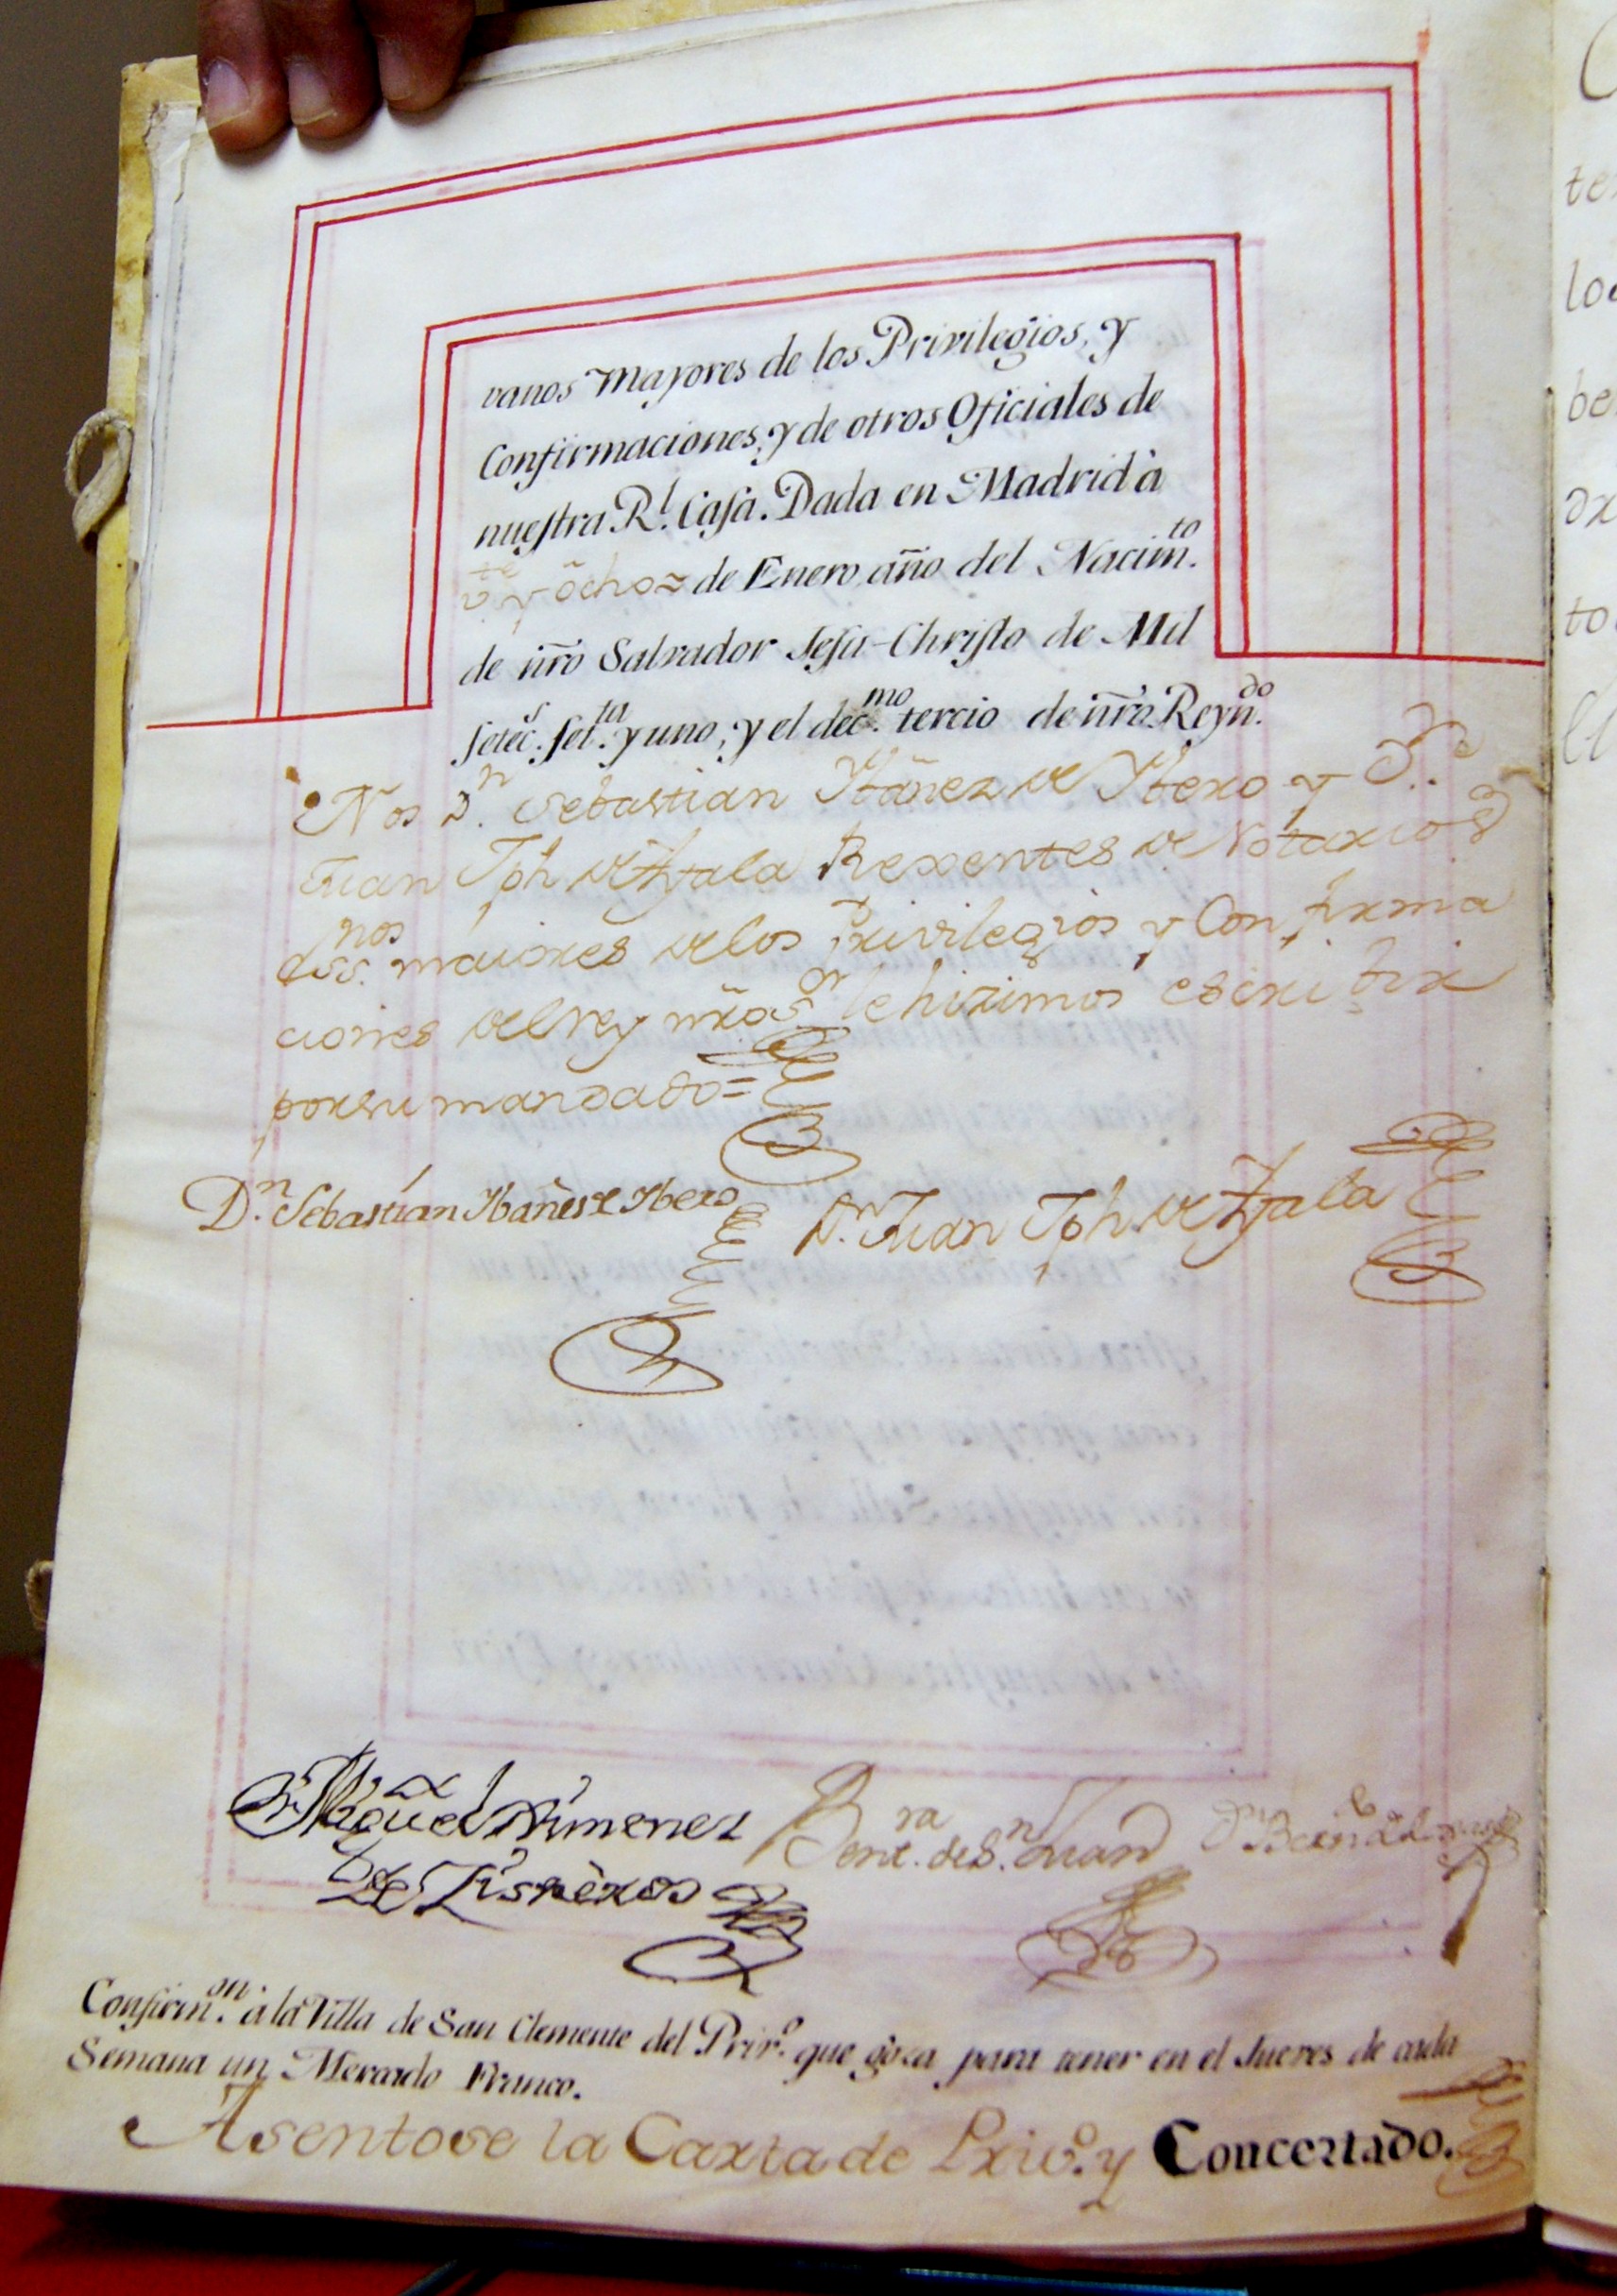 vanos Mayores de los Privilegios, y
Confirmaciones, y de otros Oficiales de
nuestra Rl. Casa. Dada en Madrid à
vte. y ôcho = de Enero, año del Nacimto.
de ñro Salvador Jesu-Christo de Mil
setecs. setta. y uno, y el decmo. tercio de ñro. Reyndo.
Nos Dn. Sebastian Ybañez de Ybero y Dn.
Juan Jph de Ayala Rexentes de Notarios
essnos. maiores de los Privilegios y Confirma
ciones del rey nro Sor le hizimos escriuir
por su mandado =
Dn. Sebastian Ybañes de Ybero
Dn. Juan Jph. de Ayala
Dn. Miguel Ximenez
de Zisneros
Bentra. de Sn. Juan
Confirmon. à la Villa de San Clemente del Privo. que goza para tener en el Jueves de cada
Semana un Mercado Franco.
Asentose la Carta de Privo. y Concertado.